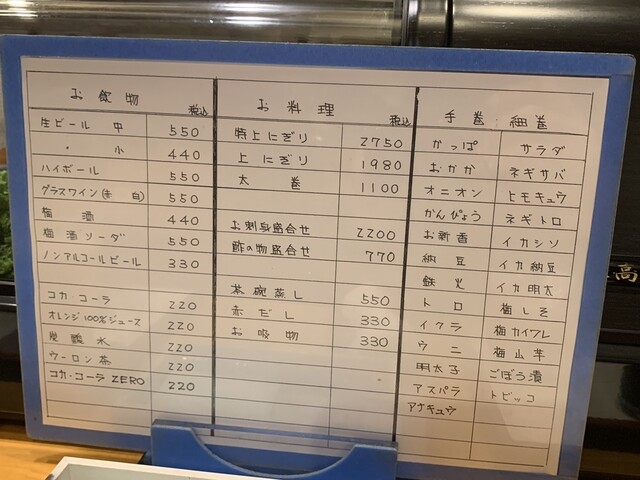 お飲物 税込
生ビール 中 550
〃 小 440
ハイボール 550
グラスワイン(赤 白) 550
梅酒 440
梅酒ソーダ 550
ノンアルコールビール 330
コカ・コーラ 220
オレンジ100%ジュース 220
炭酸水 220
ウーロン茶 220
コカ・コーラ ZERO 220
お料理 税込
特上にぎり 2750
上にぎり 1980
太巻 1100
お刺身盛合せ 2200
酢の物盛合せ 770
茶碗蒸し 550
赤だし 330
お吸物 330
手巻:細巻
かっぱ サラダ
おかか ネギサバ
オニオン ヒモキュウ
かんぴょう ネギトロ
お新香 イカシソ
納豆 イカ納豆
鉄火 イカ明太
トロ 梅しそ
イクラ 梅カイワレ
ウニ 梅山芋
明太子 ごぼう漬
アスパラ トビッコ
アナキュウ
高